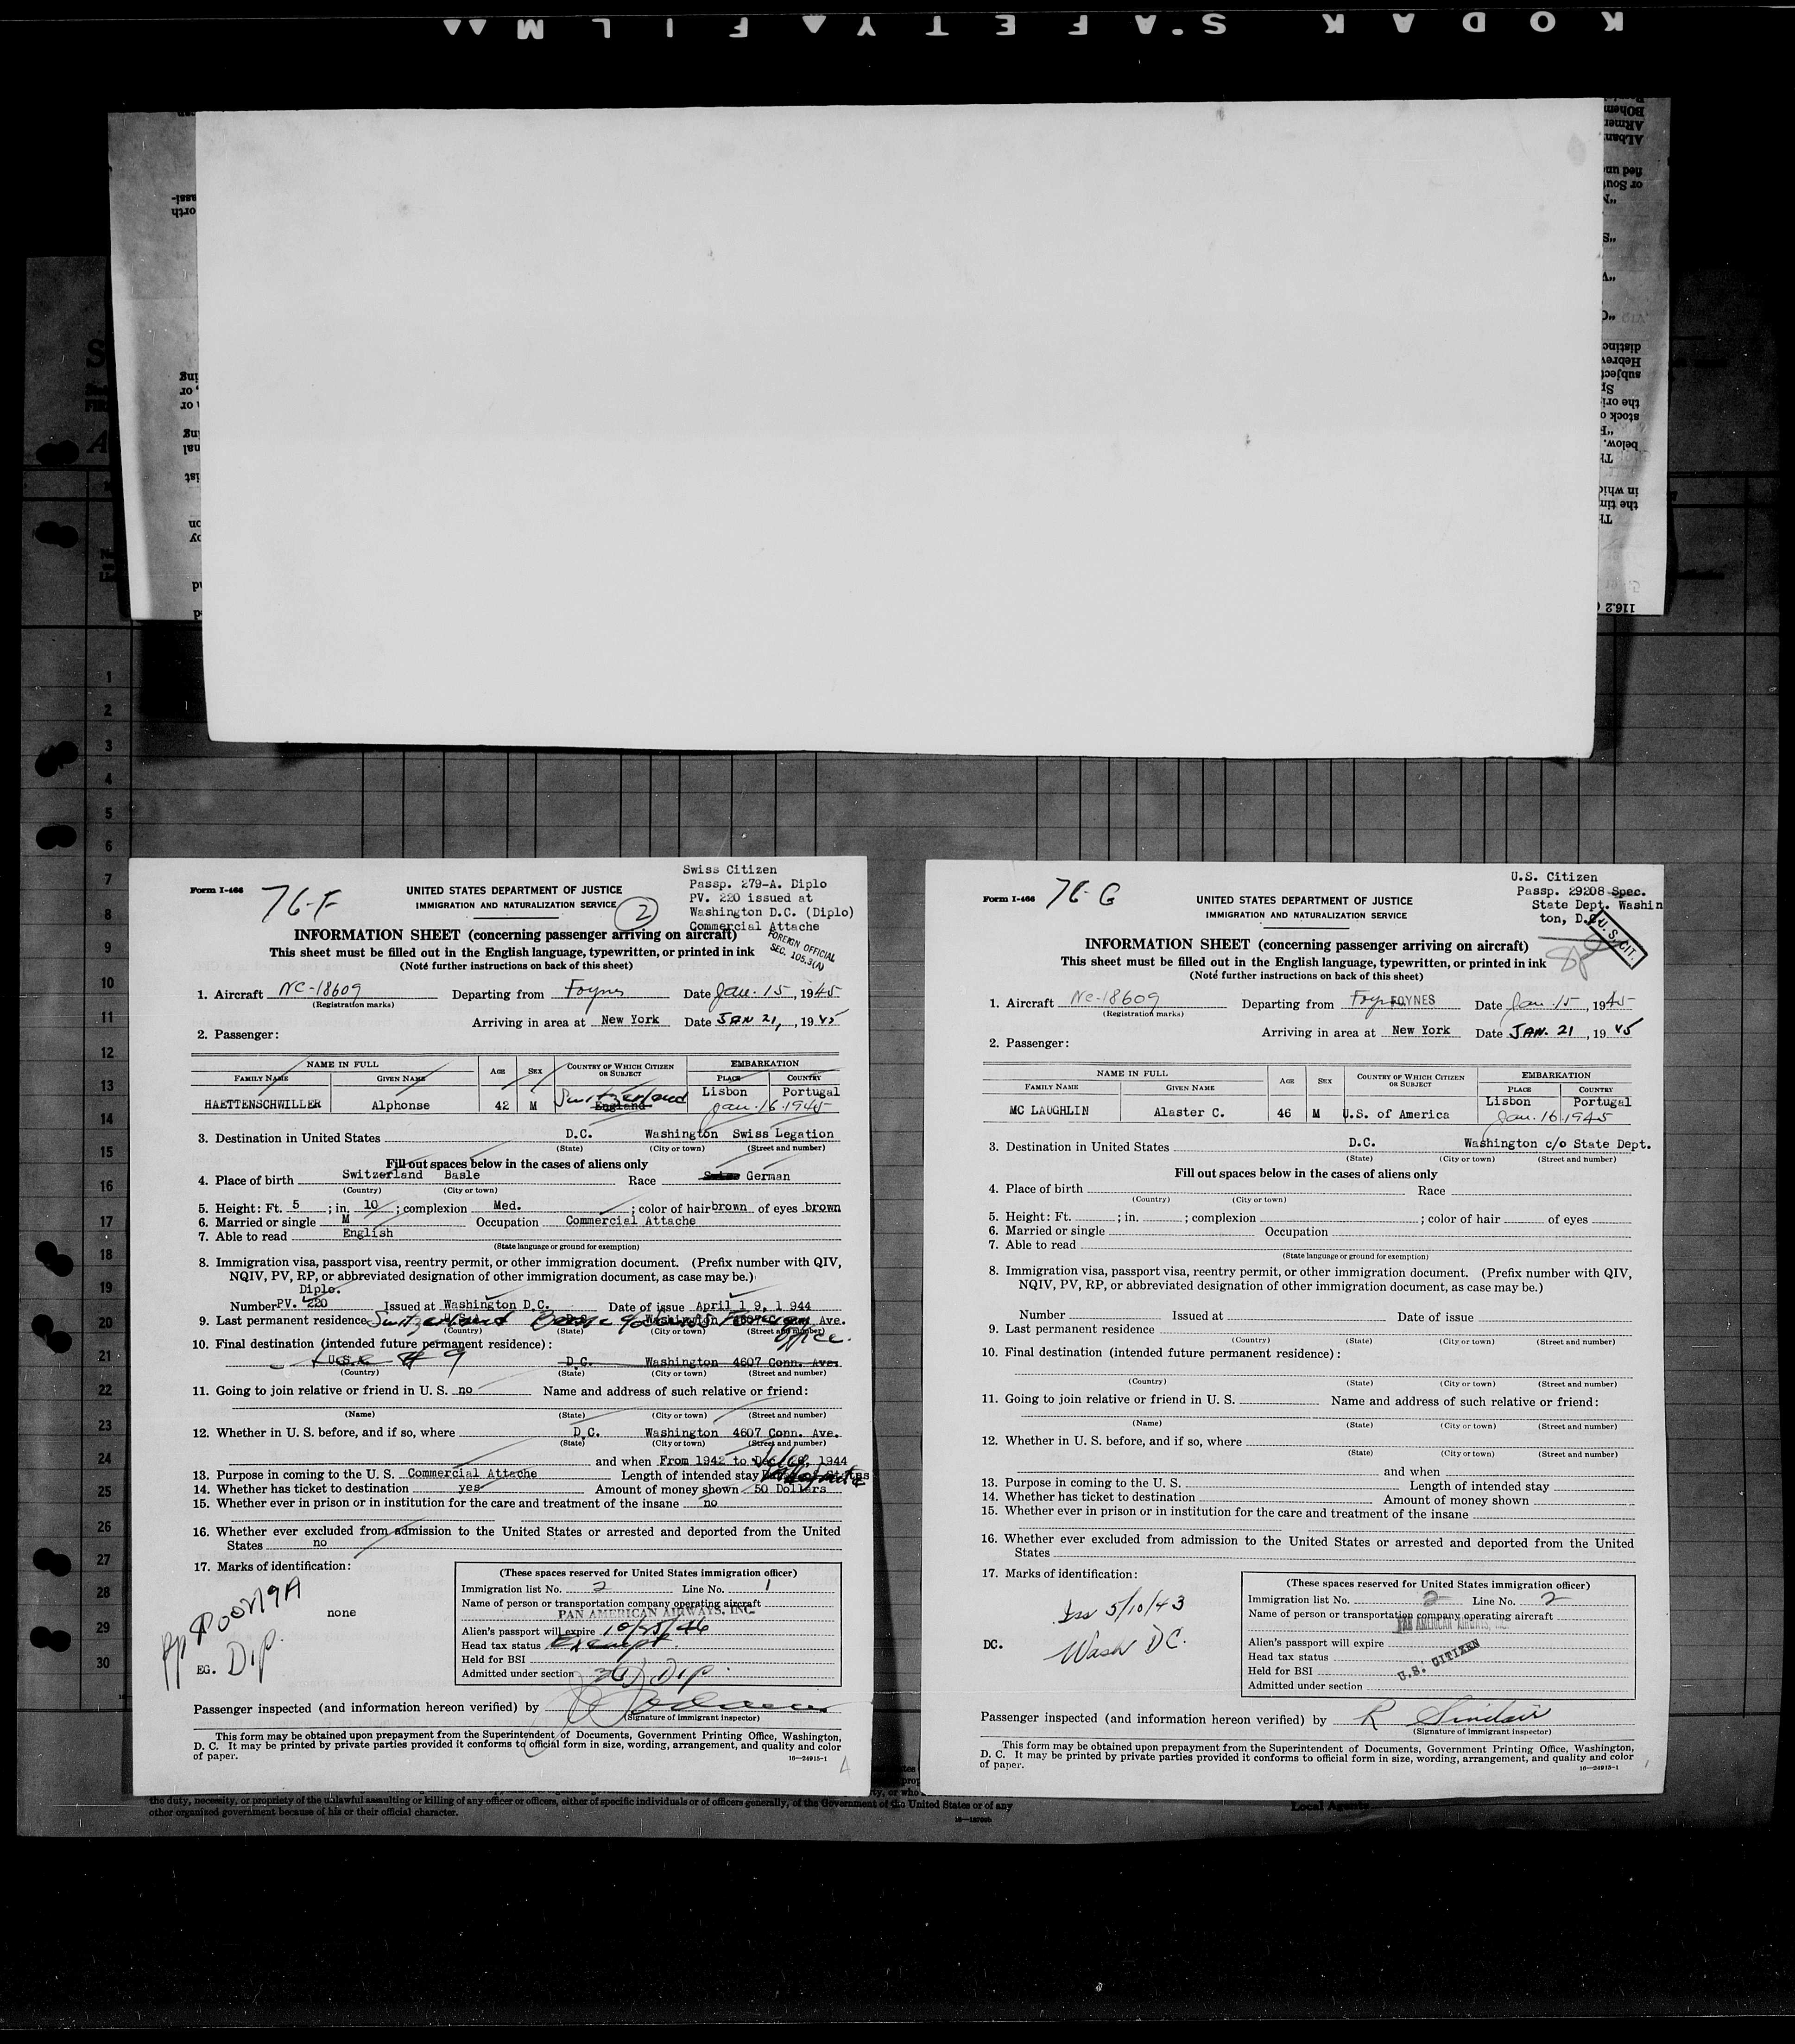 KODAK SAFETY FILM
1
2
3
4
5
6
7
8
9
10
11
12
13
14
15
16
17
18
19
20
21
22
23
24
25
26
27
28
29
30
Form I-466
76-F
UNITED STATES DEPARTMENT OF JUSTICE
IMMIGRATION AND NATURALIZATION SERVICE
2
Swiss Citizen
Passp. 279-A. Diplo
PV. 220 issued at
Washington D.C. (Diplo)
Commercial Attache
FOREIGN OFFICIAL
SEC. 105.3(A)
INFORMATION SHEET (concerning passenger arriving on aircraft)
This sheet must be filled out in the English language, typewritten, or printed in ink
(Note further instructions on back of this sheet)
1. Aircraft NC-18609 Departing from Foynes Date Jan. 15, 1945
(Registration marks)
Arriving in area at New York Date JAN 21, 1945
2. Passenger:
NAME IN FULL AGE SEX COUNTRY OF WHICH CITIZEN OR SUBJECT EMBARKATION
FAMILY NAME GIVEN NAME PLACE COUNTRY
Switzerland Lisbon Portugal
HAETTENSCHWILLER Alphonse 42 M England Jan. 16 1945
3. Destination in United States D.C. Washington Swiss Legation
(State) (City or town) (Street and number)
Fill out spaces below in the cases of aliens only
4. Place of birth Switzerland Basle Race Swiss German
(Country) (City or town)
5. Height: Ft. 5; in. 10; complexion Med.; color of hair brown of eyes brown
6. Married or single M Occupation Commercial Attache
7. Able to read English
(State language or ground for exemption)
8. Immigration visa, passport visa, reentry permit, or other immigration document. (Prefix number with QIV,
NQIV, PV, RP, or abbreviated designation of other immigration document, as case may be.)
Diplo.
Number PV. 220 Issued at Washington D.C. Date of issue April 1 9, 1 944
9. Last permanent residence Switzerland D.C. Washington 4607 Conn. Ave.
(Country) (State) (City or town) (Street and number)
office.
10. Final destination (intended future permanent residence):
U.S.A. # 9 D.C. Washington 4607 Conn. Ave.
(Country) (State) (City or town) (Street and number)
11. Going to join relative or friend in U. S. no Name and address of such relative or friend:
(Name) (State) (City or town) (Street and number)
12. Whether in U. S. before, and if so, where D.C. Washington 4607 Conn. Ave.
(State) (City or town) (Street and number)
and when From 1942 to Dec. 1944
13. Purpose in coming to the U. S. Commercial Attache Length of intended stay
14. Whether has ticket to destination yes Amount of money shown 50 Dollars
15. Whether ever in prison or in institution for the care and treatment of the insane no
16. Whether ever excluded from admission to the United States or arrested and deported from the United
States no
17. Marks of identification:
none
PP
Dip.
EG.
(These spaces reserved for United States immigration officer)
Immigration list No. 2 Line No. 1
Name of person or transportation company operating aircraft
PAN AMERICAN AIRWAYS, INC.
Alien's passport will expire 10/25/46
Head tax status Exempt
Held for BSI
Admitted under section 3(1) Dip.
Passenger inspected (and information hereon verified) by
(Signature of immigrant inspector)
This form may be obtained upon prepayment from the Superintendent of Documents, Government Printing Office, Washington,
D. C. It may be printed by private parties provided it conforms to official form in size, wording, arrangement, and quality and color
of paper.
16—24915-1
Form I-466
76-G
UNITED STATES DEPARTMENT OF JUSTICE
IMMIGRATION AND NATURALIZATION SERVICE
U.S. Citizen
Passp. 29208 Spec.
State Dept. Washin
ton, D.C.
U. S. CIT.
Spl
INFORMATION SHEET (concerning passenger arriving on aircraft)
This sheet must be filled out in the English language, typewritten, or printed in ink
(Note further instructions on back of this sheet)
1. Aircraft NC-18609 Departing from FOYNES Date Jan. 15, 1945
(Registration marks)
Arriving in area at New York Date JAN. 21, 1945
2. Passenger:
NAME IN FULL AGE SEX COUNTRY OF WHICH CITIZEN OR SUBJECT EMBARKATION
FAMILY NAME GIVEN NAME PLACE COUNTRY
Lisbon Portugal
MC LAUGHLIN Alaster C. 46 M U.S. of America Jan. 16 1945
3. Destination in United States D.C. Washington c/o State Dept.
(State) (City or town) (Street and number)
Fill out spaces below in the cases of aliens only
4. Place of birth Race
(Country) (City or town)
5. Height: Ft. ; in. ; complexion ; color of hair of eyes
6. Married or single Occupation
7. Able to read
(State language or ground for exemption)
8. Immigration visa, passport visa, reentry permit, or other immigration document. (Prefix number with QIV,
NQIV, PV, RP, or abbreviated designation of other immigration document, as case may be.)
Number Issued at Date of issue
9. Last permanent residence
(Country) (State) (City or town) (Street and number)
10. Final destination (intended future permanent residence):
(Country) (State) (City or town) (Street and number)
11. Going to join relative or friend in U. S. Name and address of such relative or friend:
(Name) (State) (City or town) (Street and number)
12. Whether in U. S. before, and if so, where
(State) (City or town) (Street and number)
and when
13. Purpose in coming to the U. S. Length of intended stay
14. Whether has ticket to destination Amount of money shown
15. Whether ever in prison or in institution for the care and treatment of the insane
16. Whether ever excluded from admission to the United States or arrested and deported from the United
States
17. Marks of identification:
Iss 5/10/43
DC. Wash DC.
(These spaces reserved for United States immigration officer)
Immigration list No. 2 Line No. 2
Name of person or transportation company operating aircraft
PAN AMERICAN AIRWAYS, INC.
Alien's passport will expire
Head tax status
Held for BSI
U.S. CITIZEN
Admitted under section
Passenger inspected (and information hereon verified) by R Sinclair
(Signature of immigrant inspector)
This form may be obtained upon prepayment from the Superintendent of Documents, Government Printing Office, Washington,
D. C. It may be printed by private parties provided it conforms to official form in size, wording, arrangement, and quality and color
of paper.
16—24915-1
the duty, necessity, or propriety of the unlawful assaulting or killing of any officer or officers, either of specific individuals or of officers generally, of the Government of the United States or of any
other organized government because of his or their official character.
Local Agents